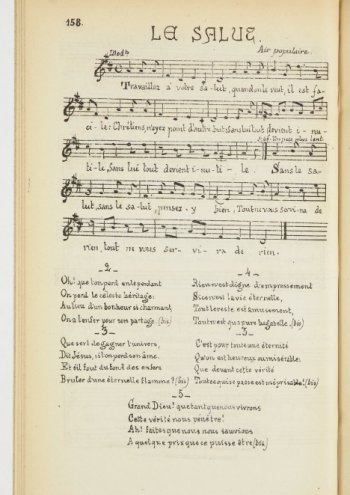 158.
LE SALUT.
Modto
Air populaire.
Travaillez à votre salut, quand on le veut, il est fa-
cile: Chrétiens, n'ayez point d'autre but: sans lui tout devient i-nu-
Ref. Un peu plus lent
ti-le, Sans lui tout devient i-nu-ti-le. Sans le sa-
lut, sans le sa-lut, pensez-y bien, Tout ne vous servira de
rien, tout ne vous ser-vi-ra de rien.
-2-
Oh! que l'on perd en le perdant
On perd le céleste héritage:
Au lieu d'un bonheur si charmant,
On a l'enfer pour son partage. (bis)
-3-
Que sert de gagner l'univers,
Dit Jésus, si l'on perd son âme.
Et s'il faut du fond des enfers
Bruler d'une éternelle flamme? (bis)
-4-
Rien n'est digne d'empressement
Si ce n'est la vie éternelle,
Tout le reste est amusement,
Tout n'est que pure bagatelle. (bis)
-3-
C'est pour toute une éternité
Qu'on est heureux ou misérable:
Que devant cette vérité
Tout ce qui se passe est méprisable! (bis)
-5-
Grand Dieu! que tant que nous vivrons
Cette vérité nous pénètre!
Ah! faites que nous nous sauvions
A quelque prix que ce puisse être (bis)